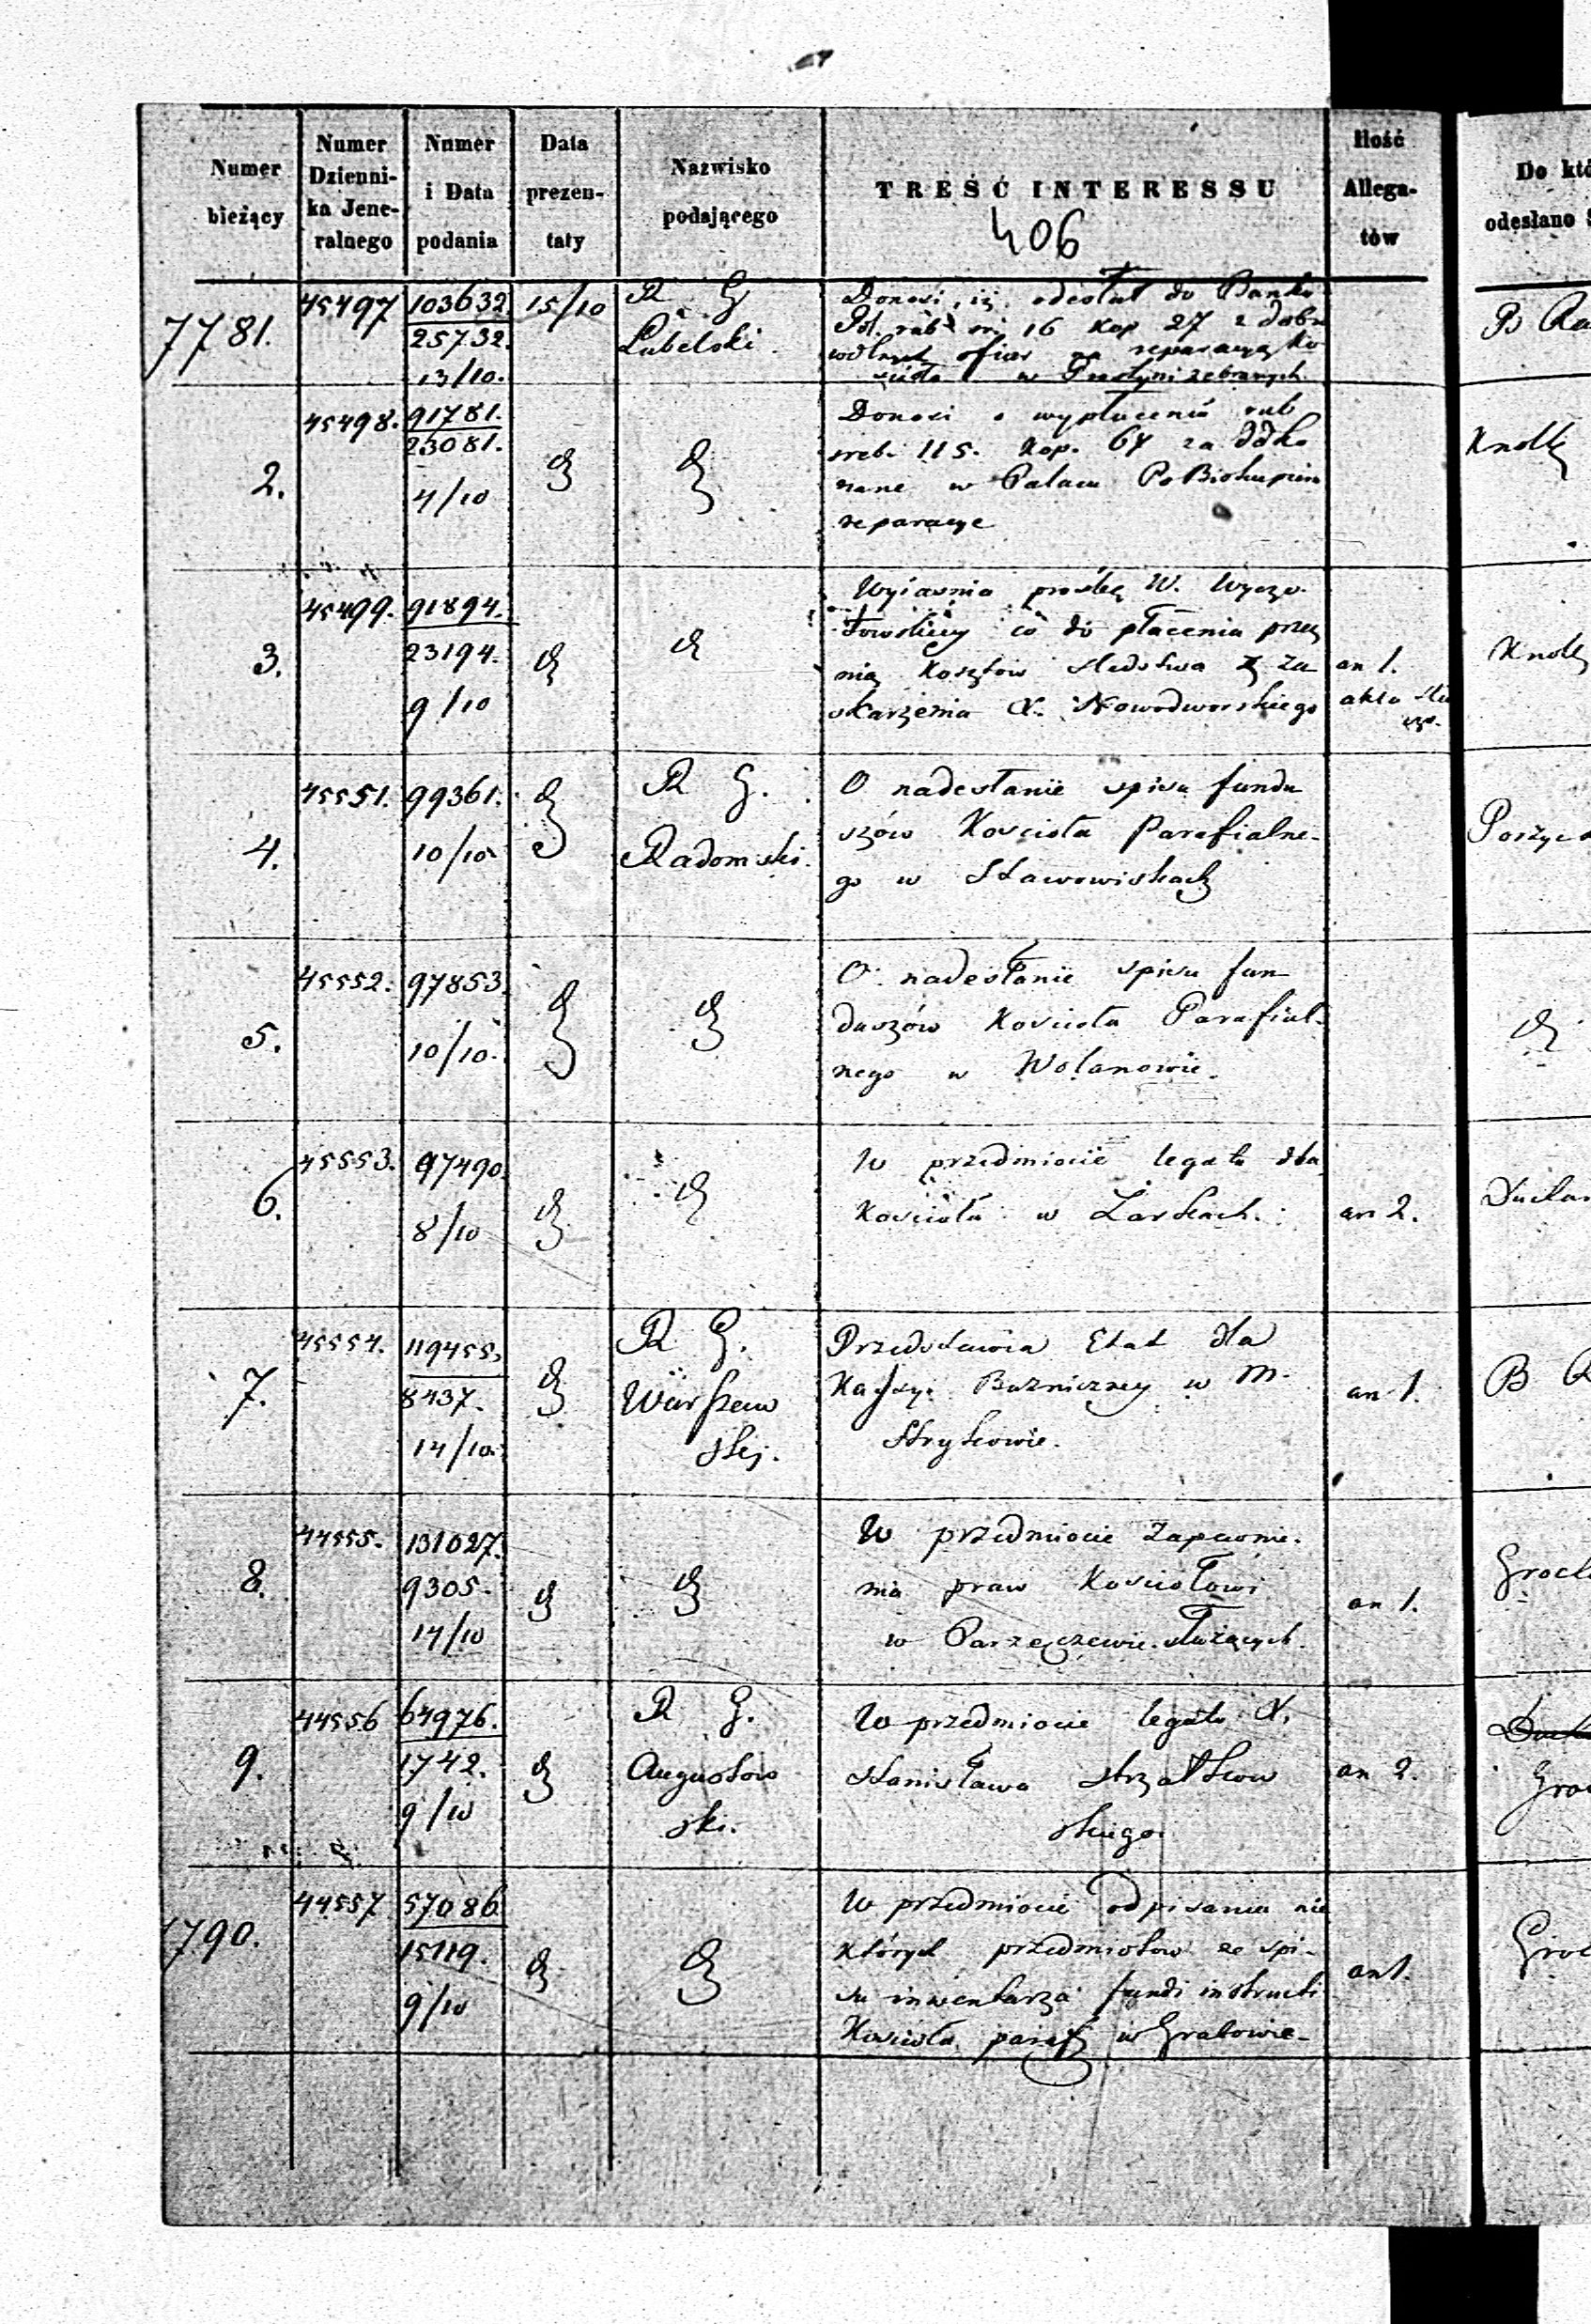 Numer bieżący
Numer Dzienni-ka Jene-ralnego
Numer i Data podania
Data prezen-taty
Nazwisko podającego
TREŚĆ INTERESSU
Ilość Allega-tów
Do któ
odesłano
406
7781.
45497
103632.
25732.
13/10.
15/10
R G
Lubelski.
Donosi, iż odesłał do Banku
Pol. rub sr 16 kop 27 z dobro
wolnych ofiar na reparacyą Ko
ścioła w zebranych
2.
45498.
91781.
23081.
4/10
Donosi o wypłaceniu rub
sreb. 115. Kop. 67 za doko
nane w Pałacu Po Biskupim
reparacye
Knoll
3.
45499.
91894.
23194.
9/10
Wyjaśnia prośbę W.
co do płacenia przez
nią Kosztów śledstwa z za
skarżenia X. Nowodworskiego
an 1.
akta
4.
45551.
99361.
10/10
R G.
Radomski.
O nadesłanie spisu fundu
szów Kościoła Parafialne-
go w Sławowiskach
5.
45552.
97853.
10/10.
O nadesłanie spisu fun
duszów Kościoła Parafial-
nego w Wolanowie.
6.
45553.
97490.
8/10
W przedmiocie legatu dla
Kościoła w Żarkach.
an 2.
7.
45554.
119455.
8437.
14/10.
R G.
Warszaw
skij.
Przedstawia Etat dla
Kassyi Bużniczney w M.
Strykowie.
an 1.
8.
44555.
131027.
9305.
14/10
W przedmiocie Zapewnie-
nia praw Kościołowi
w Parzęczewie służących
an 1.
9.
44556
64976.
1742.
9/10
R G.
Augustow
ski.
W przedmiocie legatu X.
Stanisława Strzałkow
skiego.
an 2.
7790.
44557
57086
15119.
9/10
W przedmiocie odpisania nie
których przedmiotow ze spi-
su inwentarza fundi instructi
Kościoła paraf w Grabowie-
an 1.